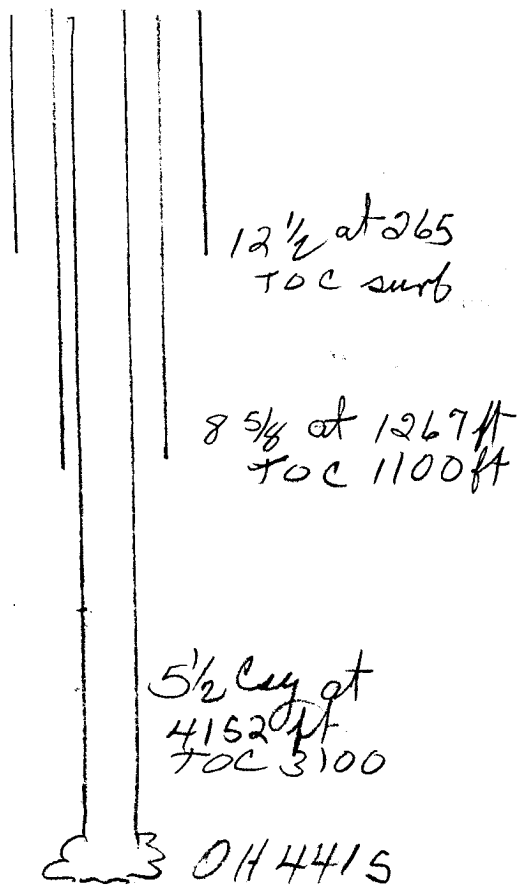 12 1/2 at 265
TOC surf
8 5/8 at 1267 ft
TOC 1100 ft
5 1/2 Csg at
4152 ft
TOC 3100
OH 4415